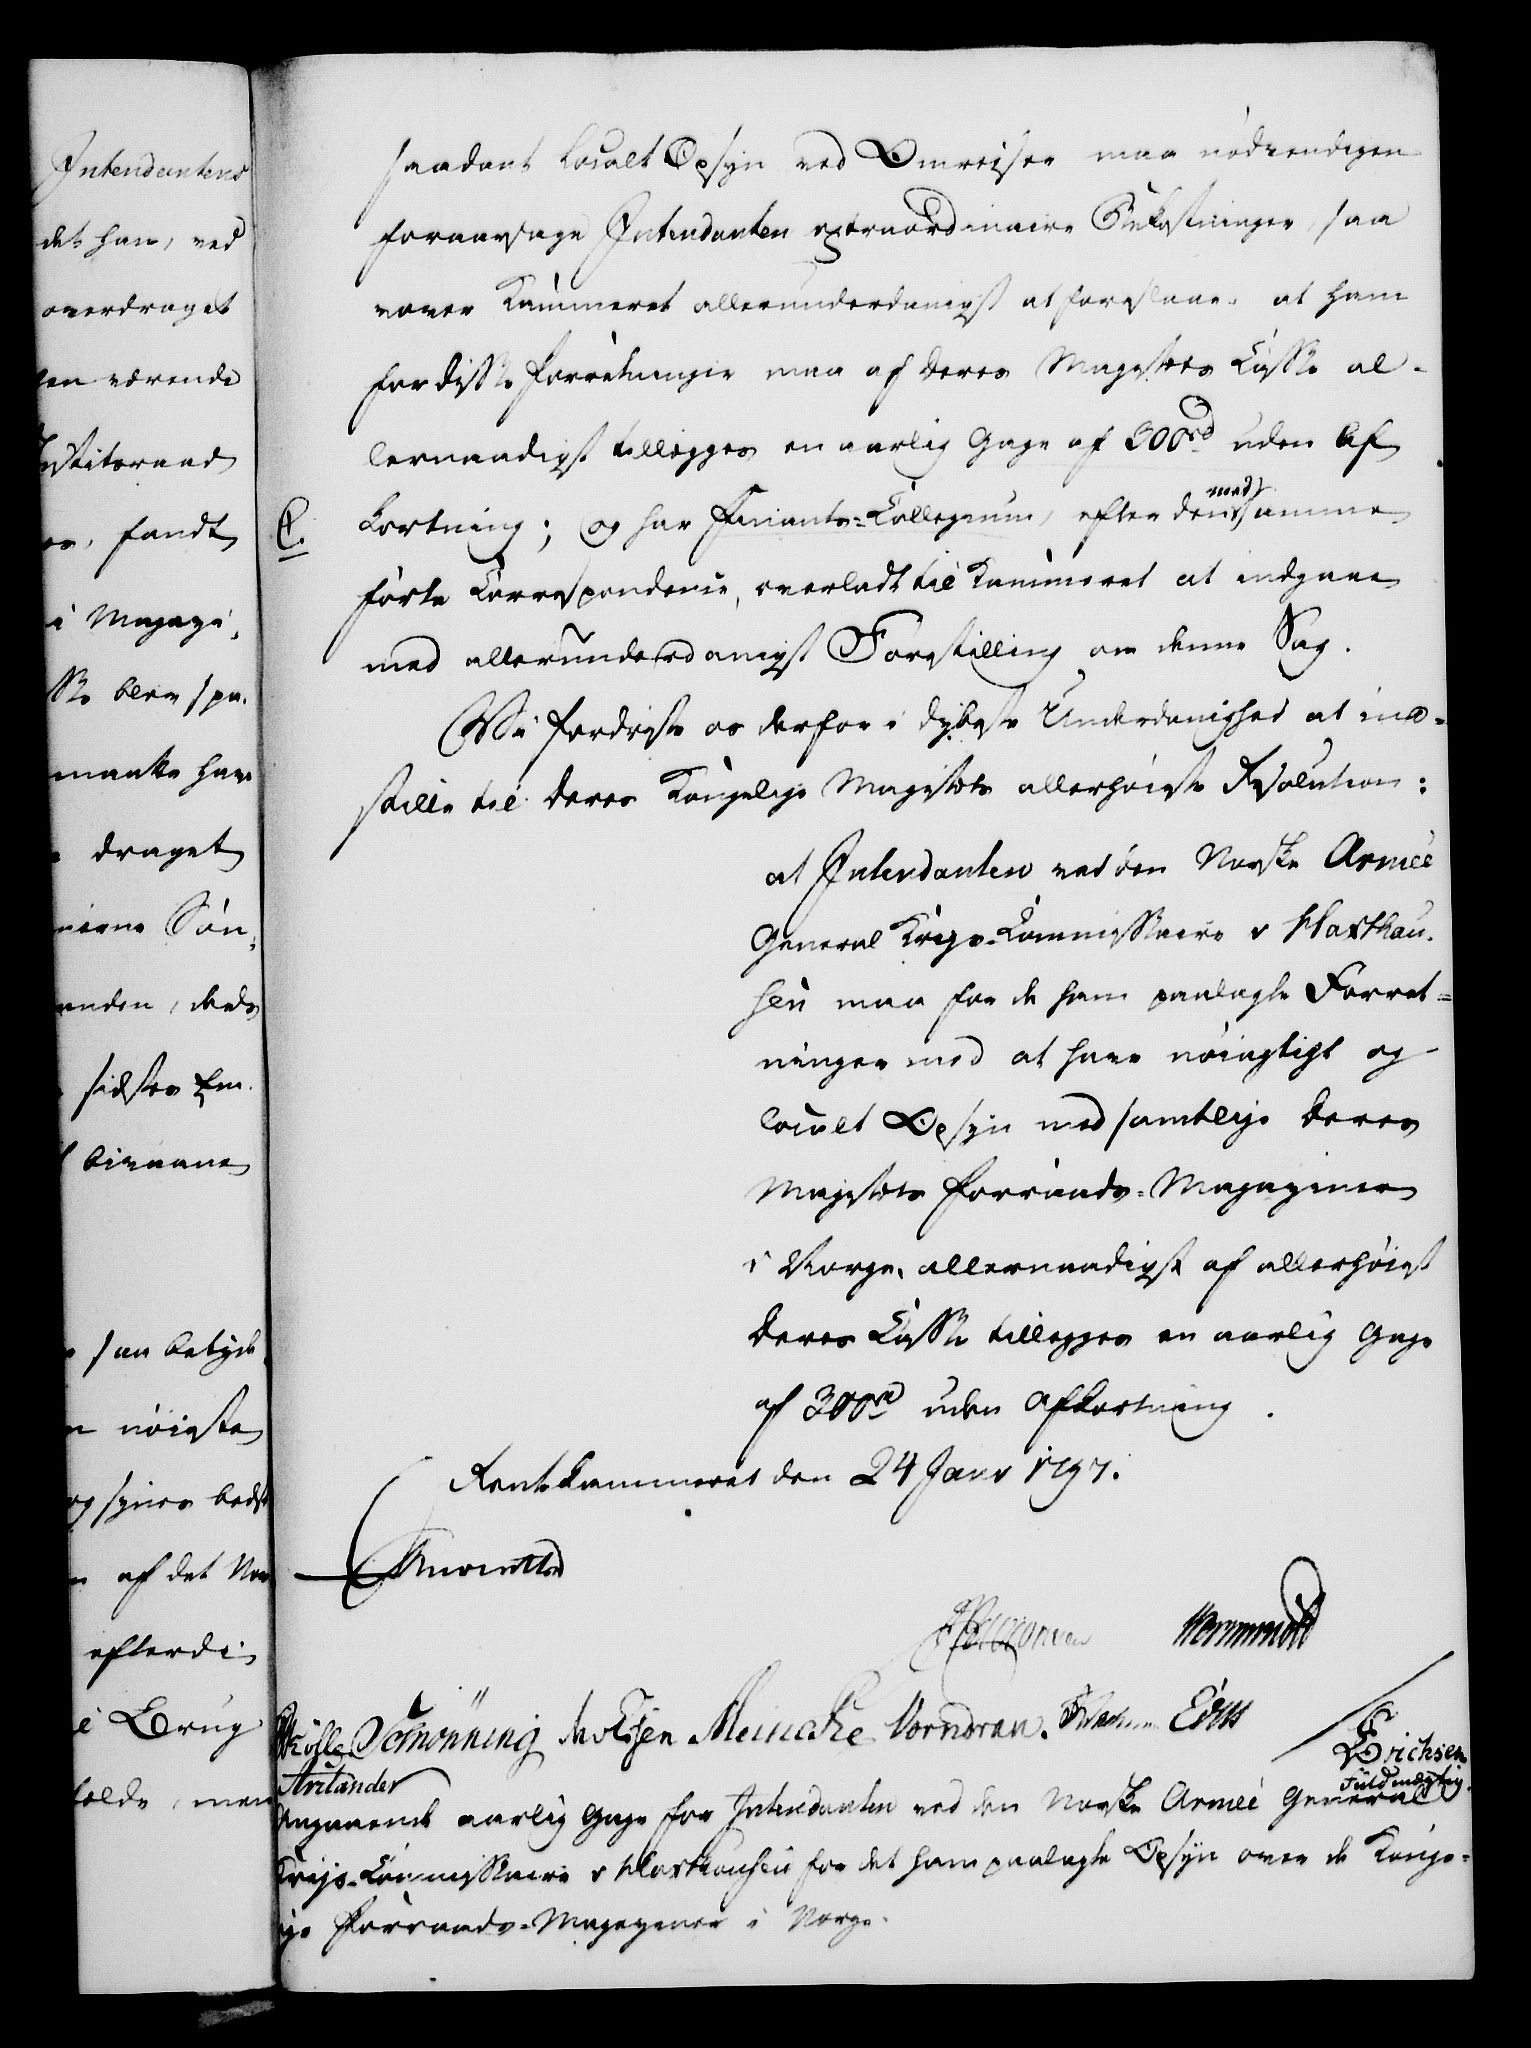 Intendantens
det han, ved
overdraget
værende
Justitsraad
fandt
i Magazi-
blev spa-
maatte have
draget
Søn-
anden, deels
sidstes Em-
bivaane
saa betyde-
nøieste
og synes bedst
af det Nor-
efterdi
i Brug
holde, men
saadant localt Opsyn ved Omreiser maa nødvendigen
foraarsage Intendanten extraordinaire Bekostninger, saa
vover Kammeret allerunderdanigst at foreslaae, at ham
for disse Forretninger maa af Deres Majestets Casse al-
lernaadigst tillegges en aarlig Gage af 300rd uden Af-
C. kortning; og har Finants-Collegium, efter den med samme
førte Correspondence, overladt til Kammeret at indgaae
med allerunderdanigst Forestilling om denne Sag.
Vi fordriste os derfor i dybeste Underdanighed at ind-
stille til Deres Kongelige Majestets allerhøieste Resolution:
at Intendanten ved den Norske Armée
General Krigs-Commissaire v Waxthau-
sen maa for de ham paalagte Forret-
ninger med at have nøiagtigt og
localt Opsyn med samtlige Deres
Majestets Forraads-Magaziner
i Norge, allernaadigst af allerhøist
Deres Casse tillegges en aarlig Gage
af 300rd uden Afkortning.
Rentekammeret den 24 Janr 1797.
Reventlow
Wormskiold
Schønning Meincke Vorndran.
Erichsen
Fuldmægtig.
Angaaende aarlig Gage for Intendanten ved den Norske Armée General
Krigs-Commissaire v Waxthausen for det ham paalagte Opsyn over de Konge-
lige Forraads-Magaziner i Norge.